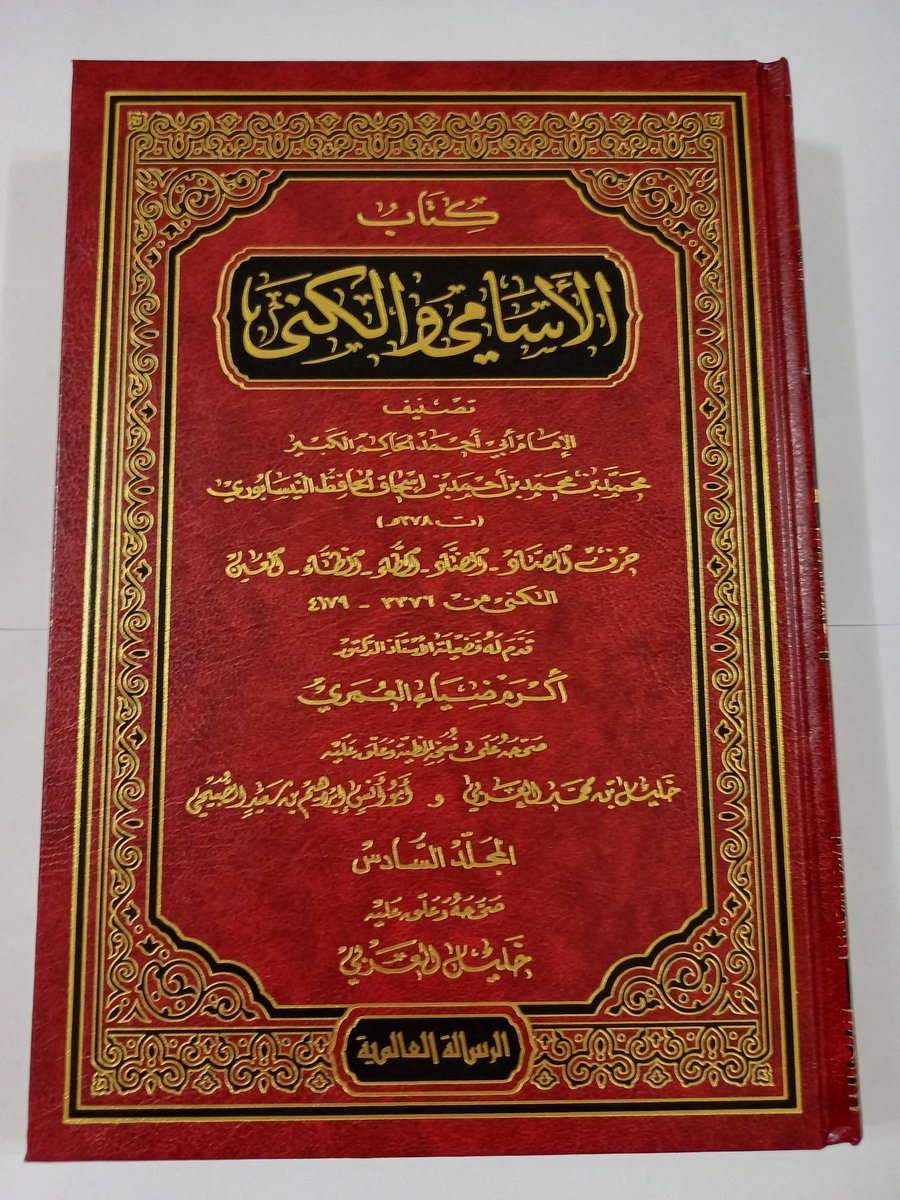 كِتَابُ
الأَسَامِي وَالكُنَى
تصنيف
الإمام أبي أحمد الحاكم الكبير
محمّد بن محمّد بن أحمد بن إسحاق الحافظ النيسابوري
(ت ٣٧٨هـ)
حرف الصاد - الضاد - الطاء - الظاء - العين
الكنى من ٣٣٧٦ - ٤١٧٩
قدّم له فضيلة الأستاذ الدكتور
أكرم ضياء العمري
صحّحه على نسخه الخطية وعلّق عليه
خليل بن محمد العربي و أبو أنس إبراهيم بن سعيد الصبيحي
المجلّد السّادس
صحّحه وعلّق عليه
خليل العربي
الرسالة العالمية